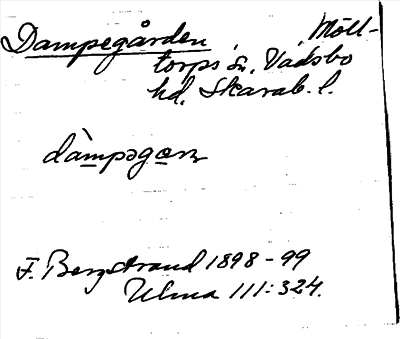 Dampegården Möll-
torps sn. Vadsbo
hd. Skarab. l.
dàmpəgɑɳ
F. Bergstrand 1898-99
Ulma 111:324.